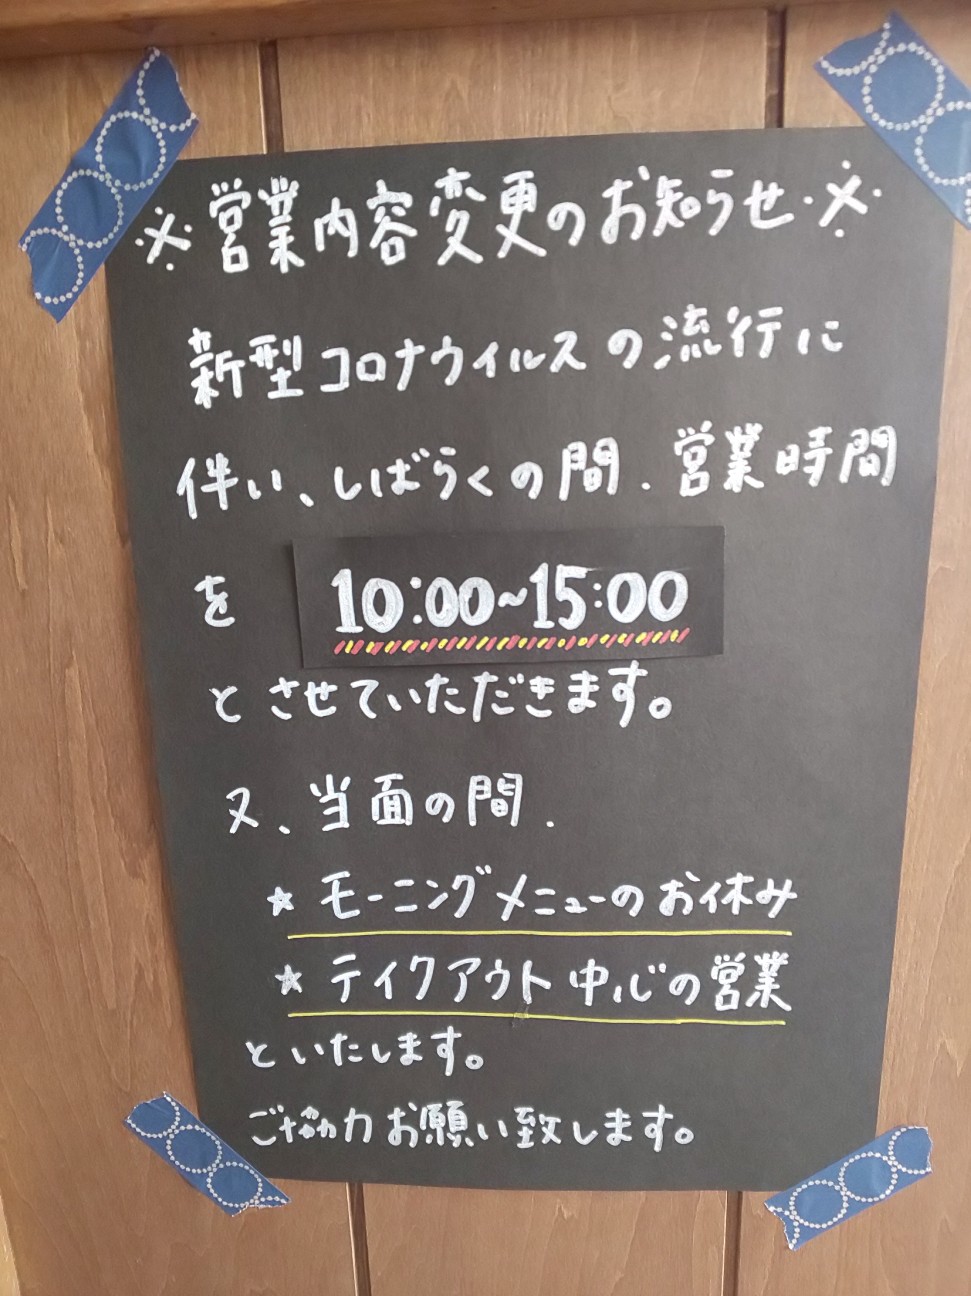 ※営業内容変更のお知らせ※
新型コロナウィルスの流行に
伴い、しばらくの間、営業時間
を 10:00~15:00
とさせていただきます。
又、当面の間、
☆ モーニングメニューのお休み
☆ テイクアウト中心の営業
といたします。
ご協力お願い致します。